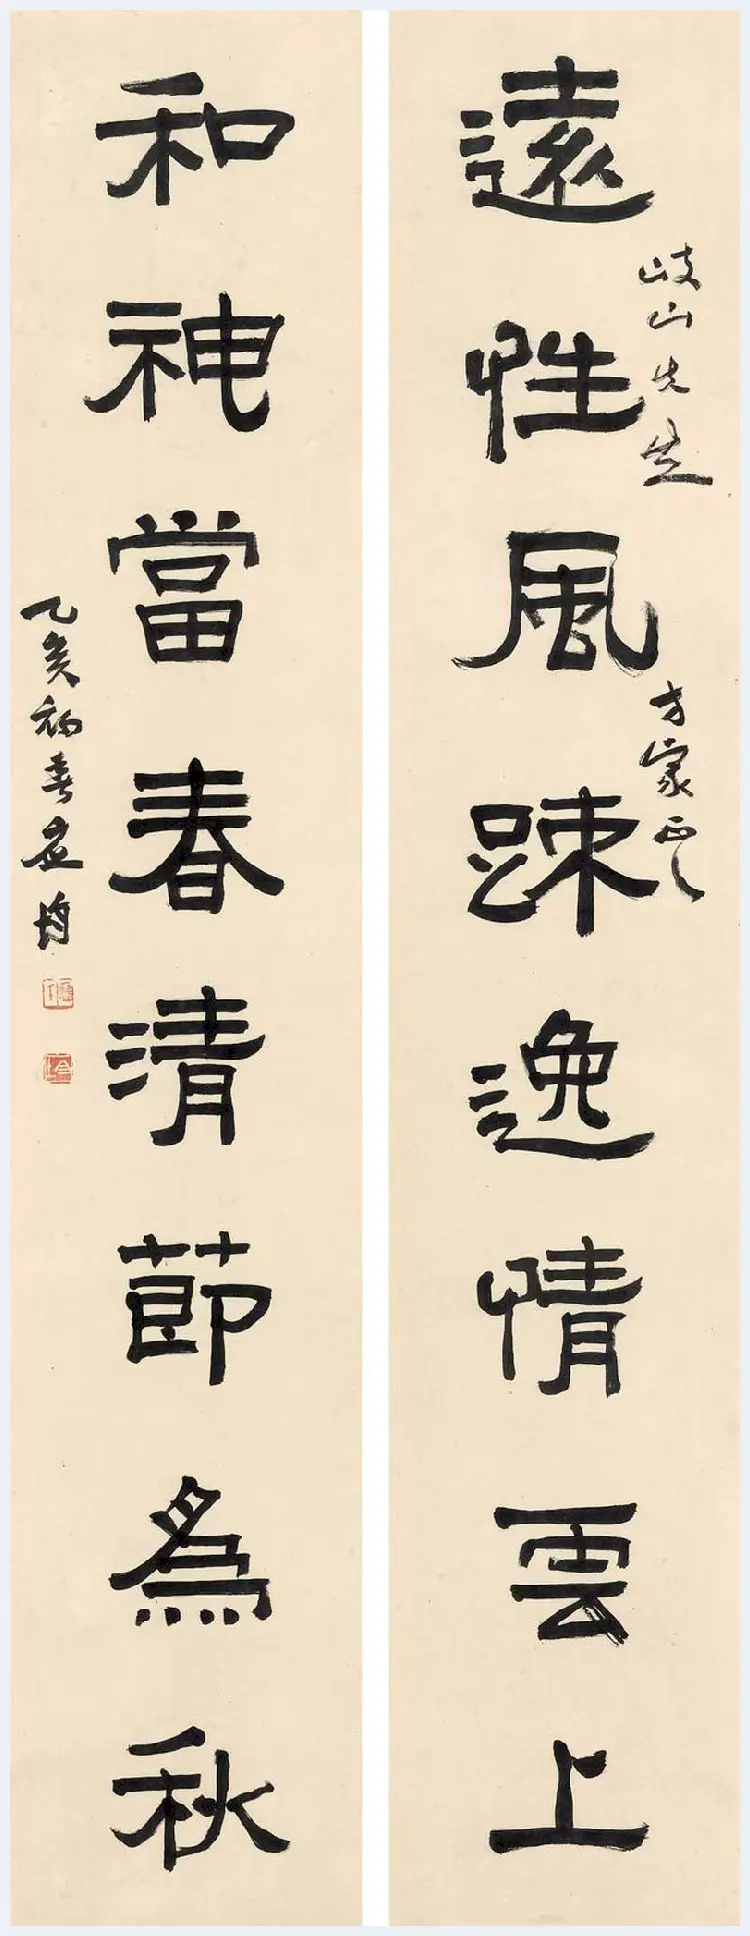 岐山先生
方家正之
遠性風踈逸情雲上
和神當春清節為秋
乙亥初春应均